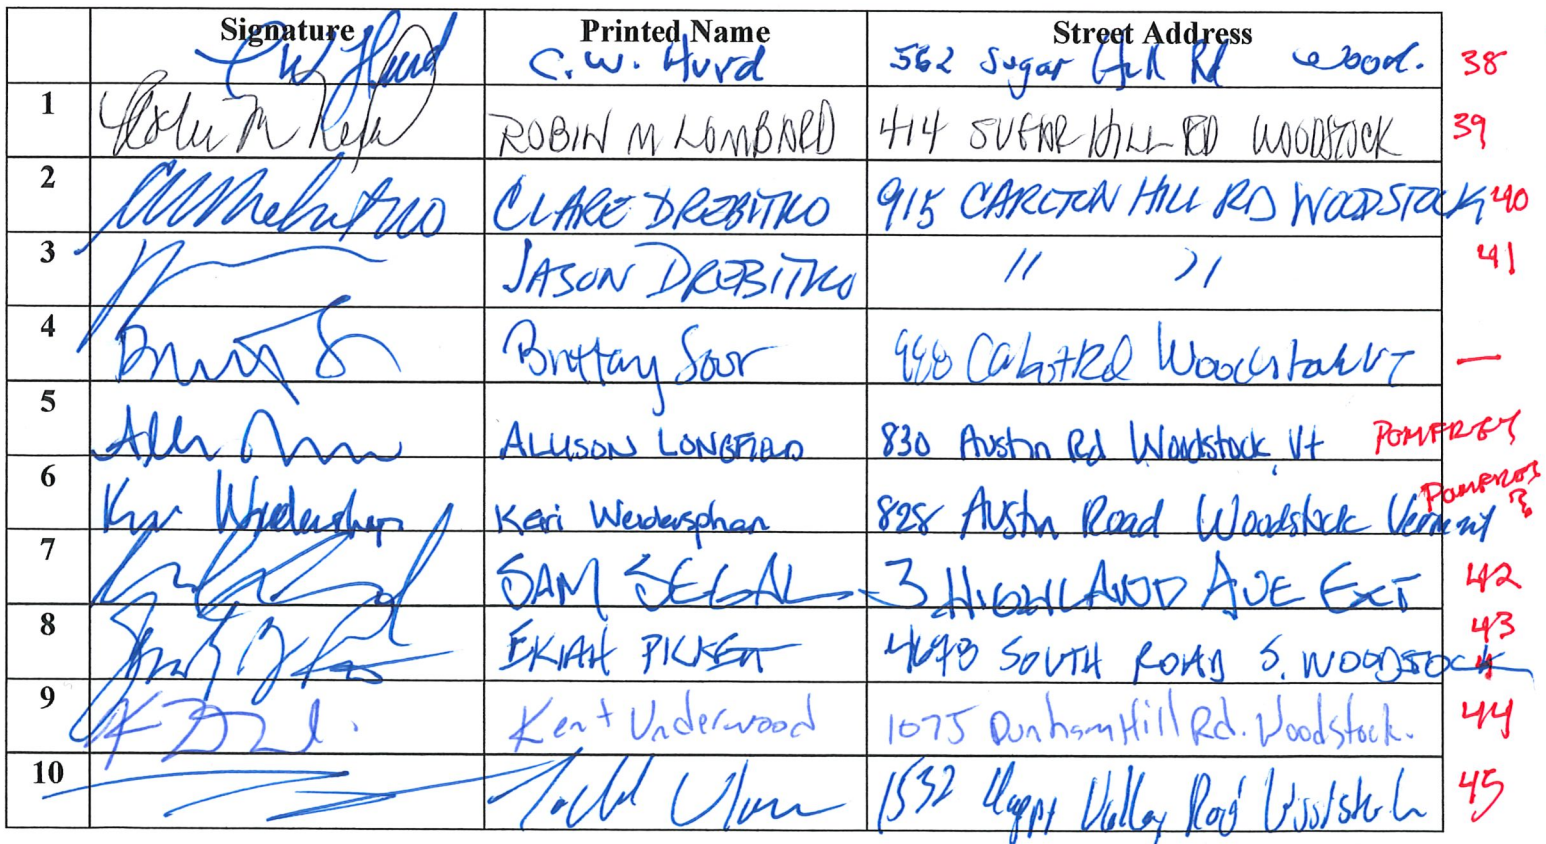 Signature Printed Name Street Address
C W Hurd C. W. Hurd 562 Sugar Hill Rd Wood. 38
1 ROBIN M LOMBARD 414 SUGAR HILL RD WOODSTOCK 39
2 CLARE DREBITKO 915 CARLTON HILL RD WOODSTOCK 40
3 JASON DREBITKO " " 41
4 Brittany Cabot Rd Woodstock VT —
5 ALLISON LONGFIELD 830 Austin Rd Woodstock, Vt POMFRET
6 Keri Weidersphan 828 Austin Road Woodstock Vermont POMFRET ?
7 SAM SEGAL 3 HIGHLAND AVE EXT 42
8 PICKETT SOUTH ROAD S. WOODSTOCK 43
9 Kent Underwood 1075 Dunham Hill Rd. Woodstock. 44
10 Todd 1532 Happy Valley Road Woodstock 45